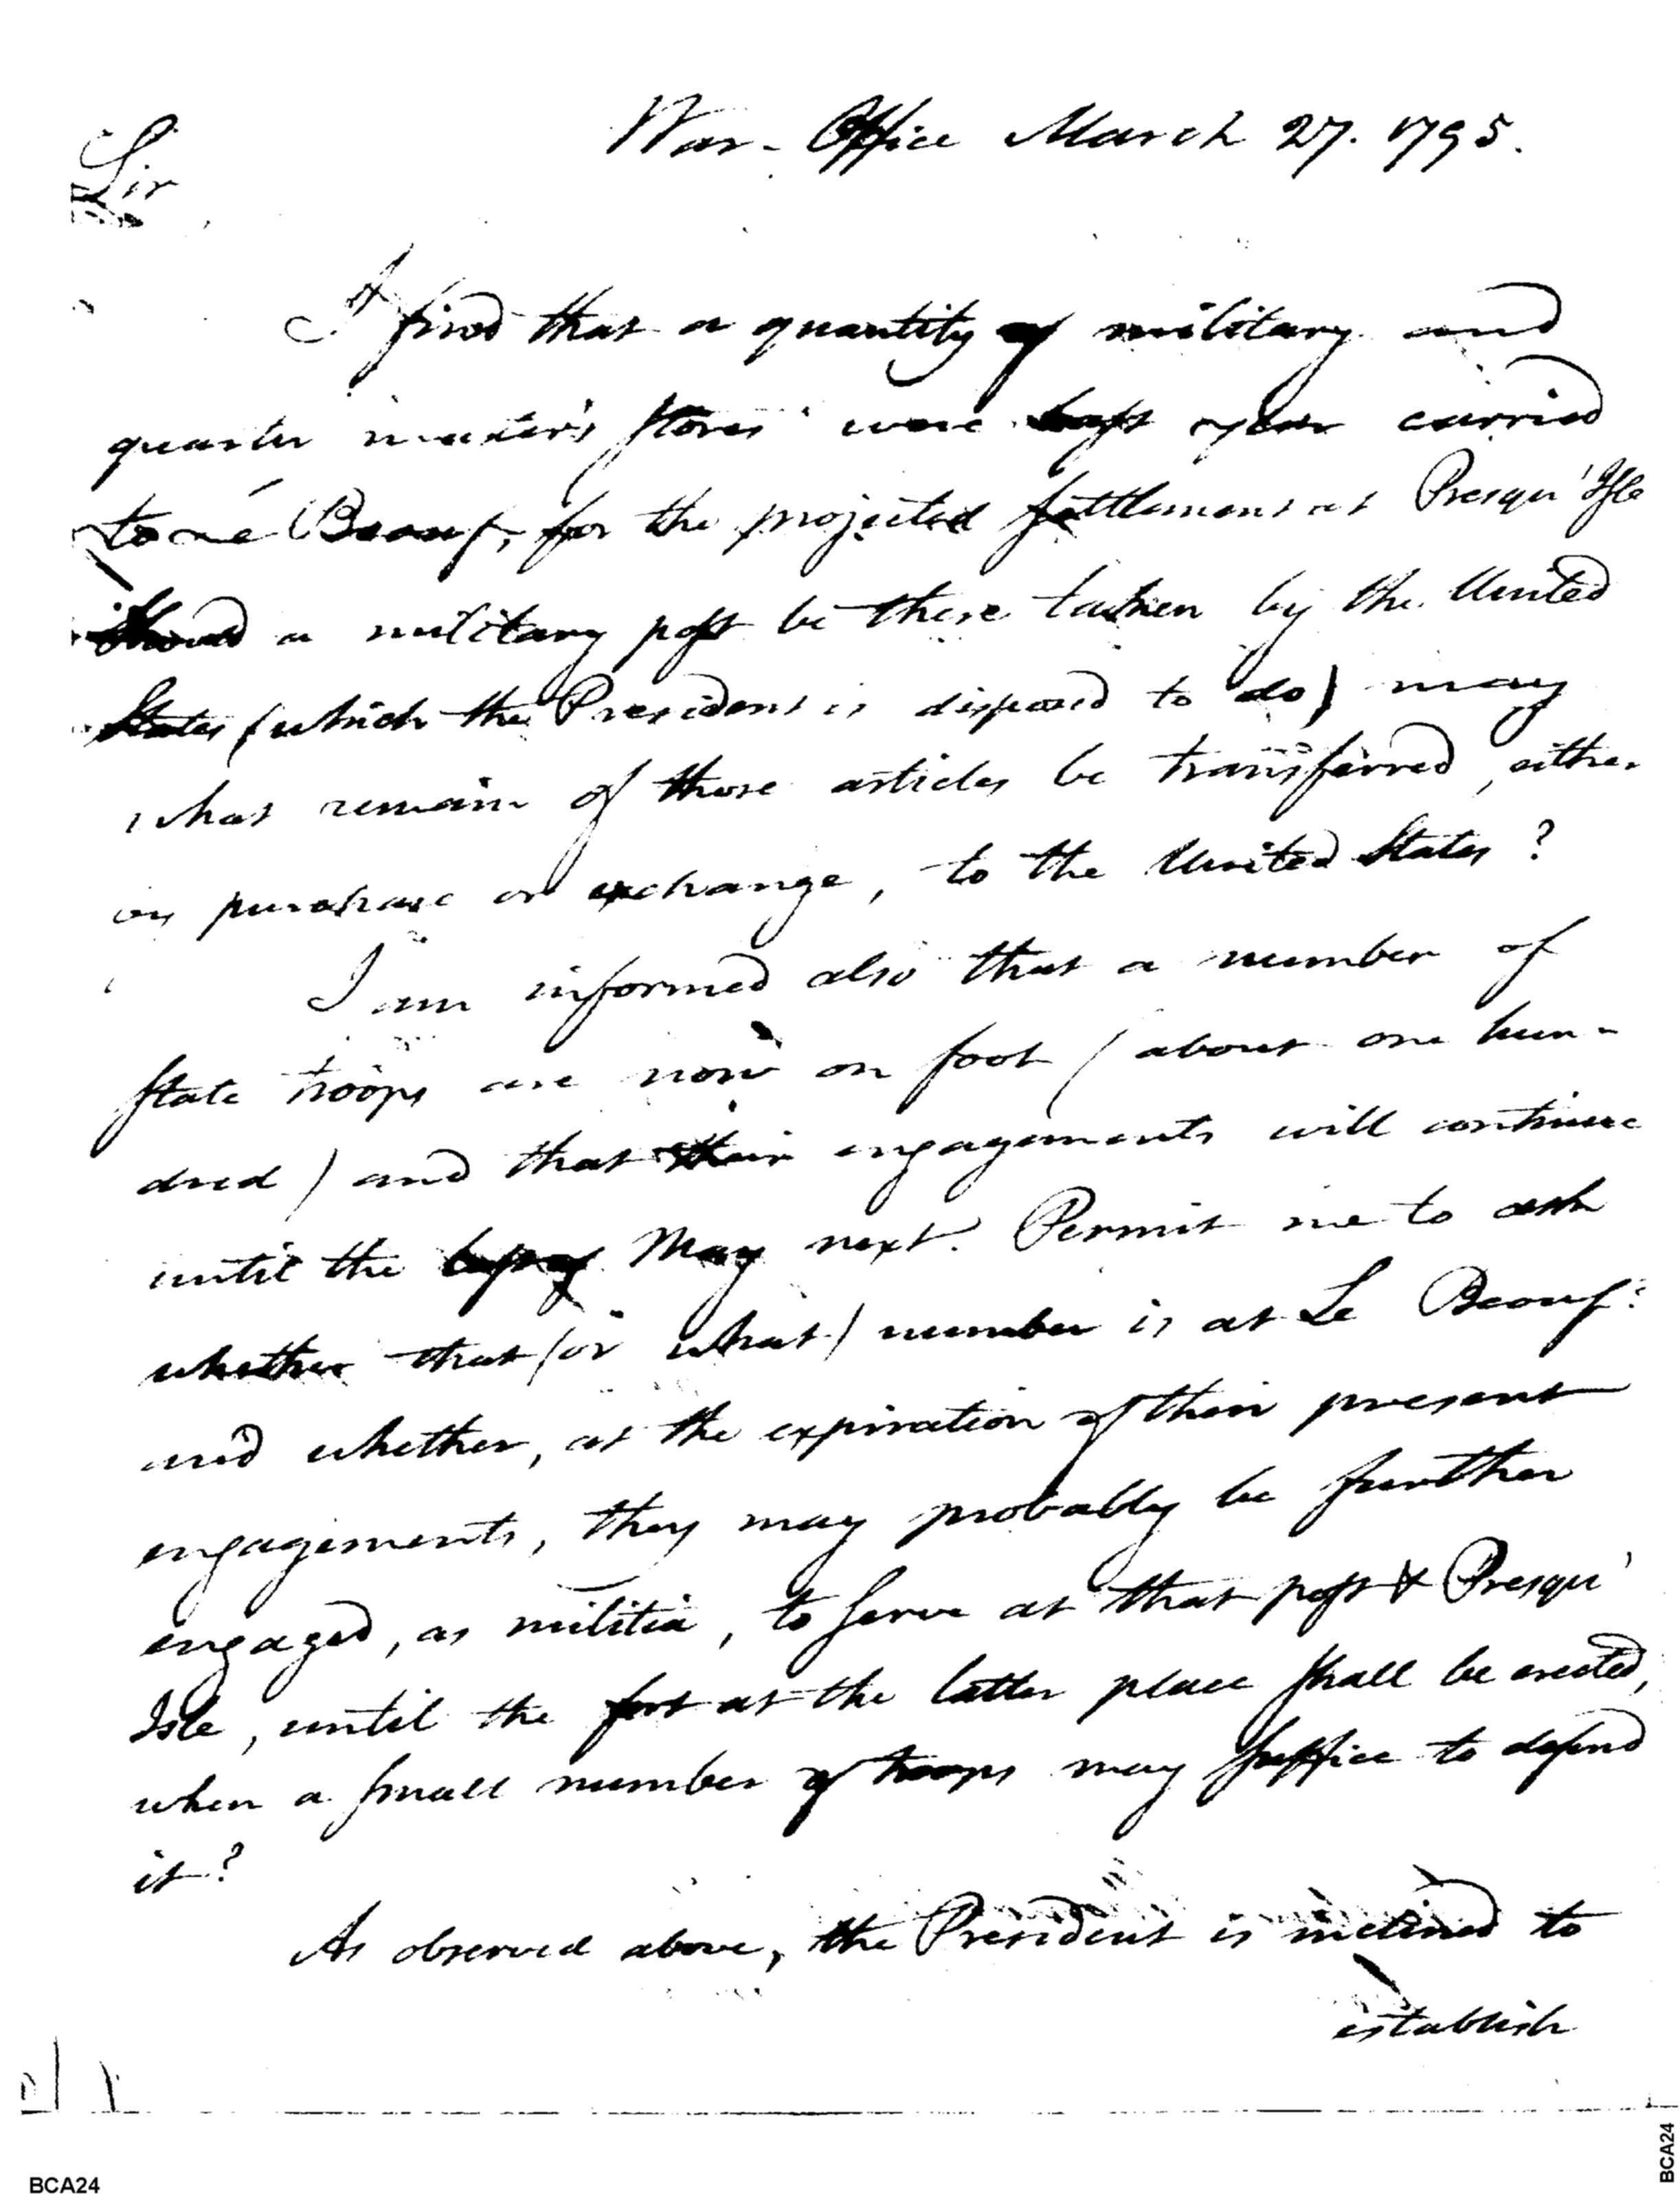 War-Office March 27. 1795.
Sir
I find that a quantity of military and
quarter master's stores were last year carried
to Le Beouf, for the projected settlement at Presqu' Isle
should a military post be there taken by the United
States (which the President is disposed to do) may
what remain of those articles be transferred, either
on purchase or exchange, to the United States?
I am informed also that a number of
state troops are now on foot (about one hun-
dred) and that their engagements will continue
until the last of May next. Permit me to ask
whether that (or what) number is at Le Beouf:
and whether, at the expiration of their present
engagements, they may probably be further
engaged, as militia, to serve at that post & Presqu'
Isle, until the fort at the latter place shall be erected,
when a small number of troops may suffice to defend
it?
As observed above, the President is inclined to
establish
BCA24
BCA24